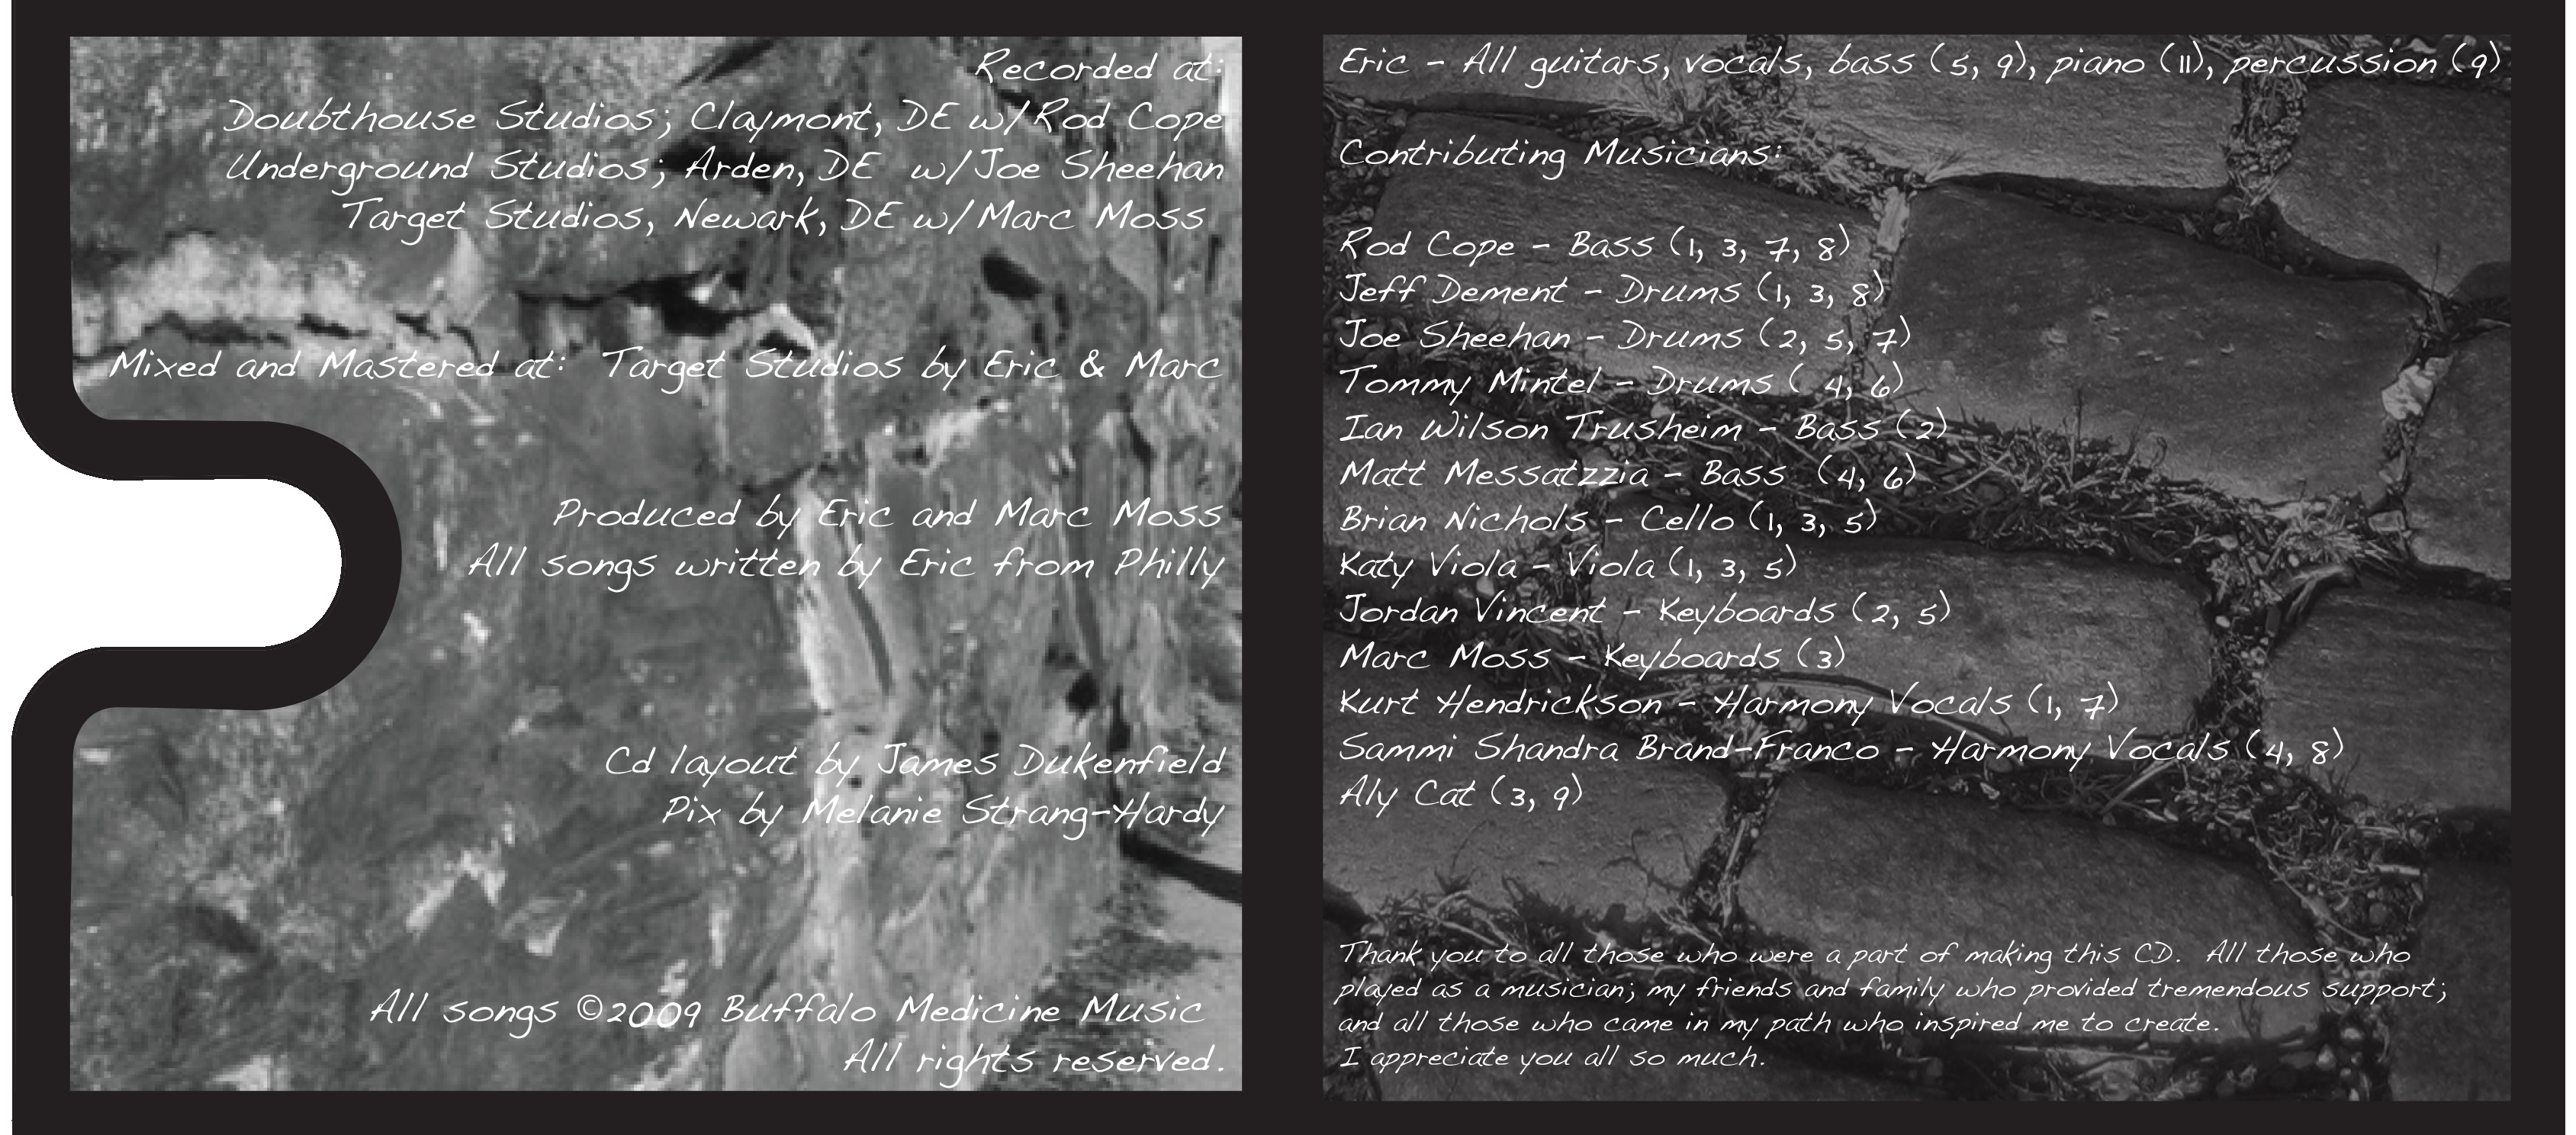 Recorded at:
Doubthouse Studios; Claymont, DE w/Rod Cope
Underground Studios; Arden, DE w/Joe Sheehan
Target Studios, Newark, DE w/Marc Moss
Mixed and Mastered at: Target Studios by Eric & Marc
Produced by Eric and Marc Moss
All songs written by Eric from Philly
Cd layout by James Dukenfield
Pix by Melanie Strang-Hardy
All songs ©2009 Buffalo Medicine Music
All rights reserved.
Eric - All guitars, vocals, bass (5, 9), piano (11), percussion (9)
Contributing Musicians:
Rod Cope - Bass (1, 3, 7, 8)
Jeff Dement - Drums (1, 3, 8)
Joe Sheehan - Drums (2, 5, 7)
Tommy Mintel - Drums ( 4, 6)
Ian Wilson Trusheim - Bass (2)
Matt Messatzzia - Bass (4, 6)
Brian Nichols - Cello (1, 3, 5)
Katy Viola - Viola (1, 3, 5)
Jordan Vincent - Keyboards (2, 5)
Marc Moss - Keyboards (3)
Kurt Hendrickson - Harmony Vocals (1, 7)
Sammi Shandra Brand-Franco - Harmony Vocals (4, 8)
Aly Cat (3, 9)
Thank you to all those who were a part of making this CD. All those who
played as a musician; my friends and family who provided tremendous support;
and all those who came in my path who inspired me to create.
I appreciate you all so much.